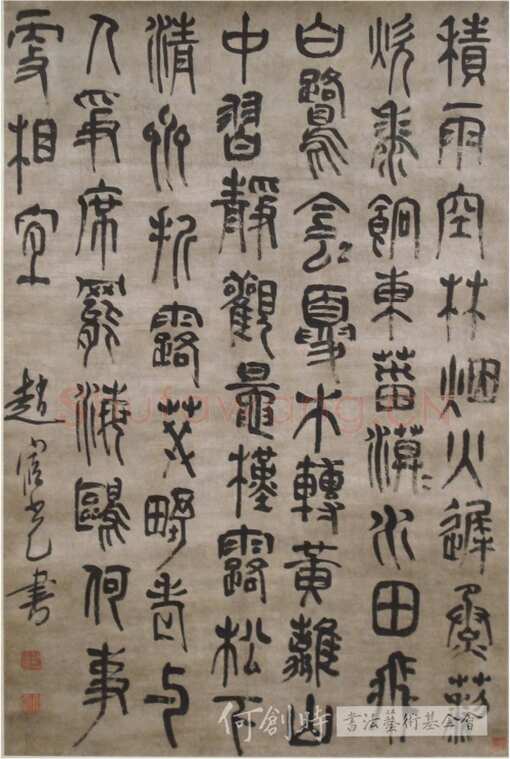 積雨空林烟火遲蒸藜
炊黍餉東菑漠〻水田飛
白鷺侌〻夏木轉黃鸝山
中習靜觀鼂槿露松下
清齋折露葵野老與
人爭席罷海鷗何事
相宜
趙宧光書
Shufawang.CN
何創時書法藝術基金會